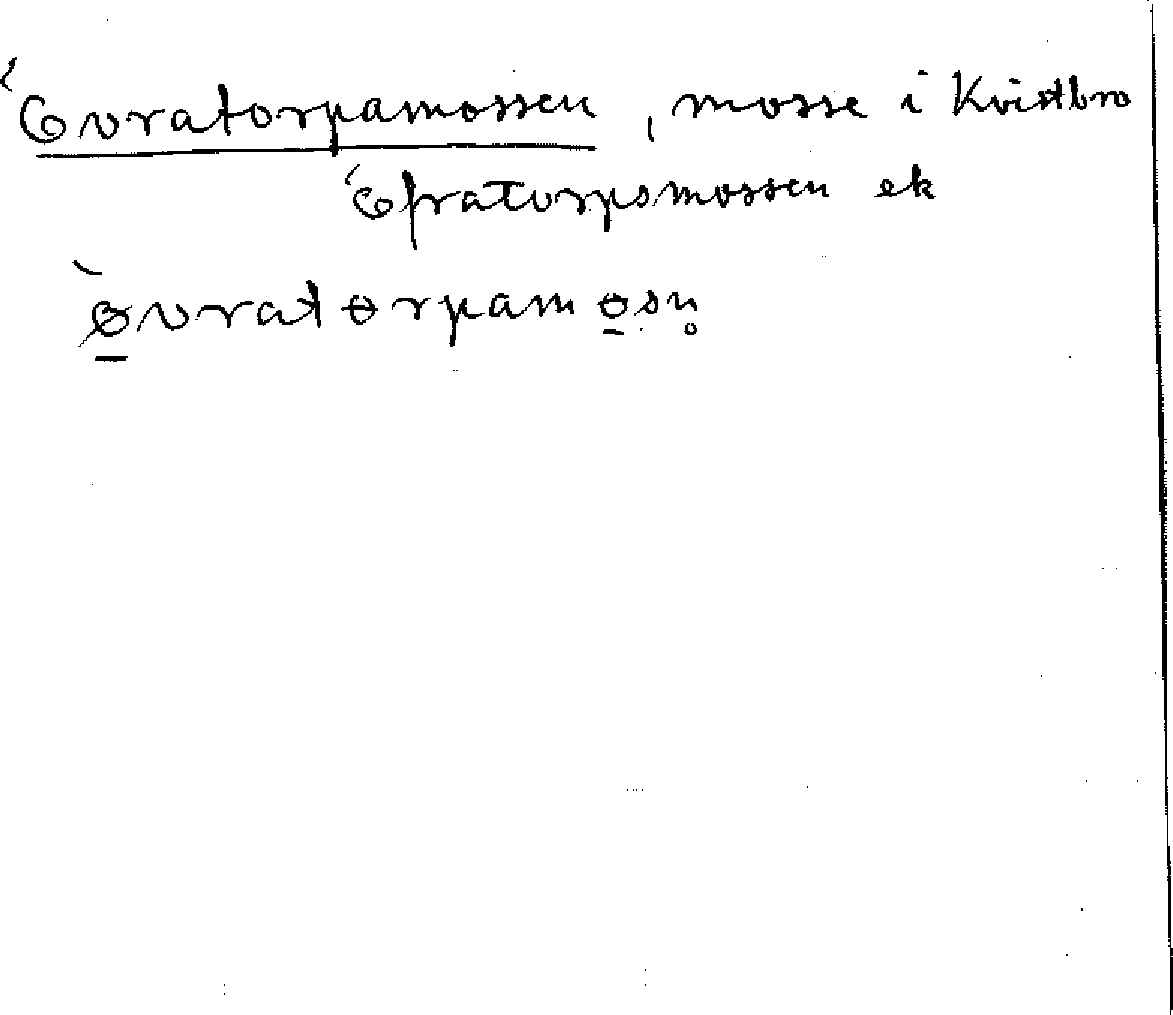 Övratorpamossen, mosse i Kvistbro
Öfratorpsmossen ek
ø̱̀vratɵrpamɵ̱sn̥